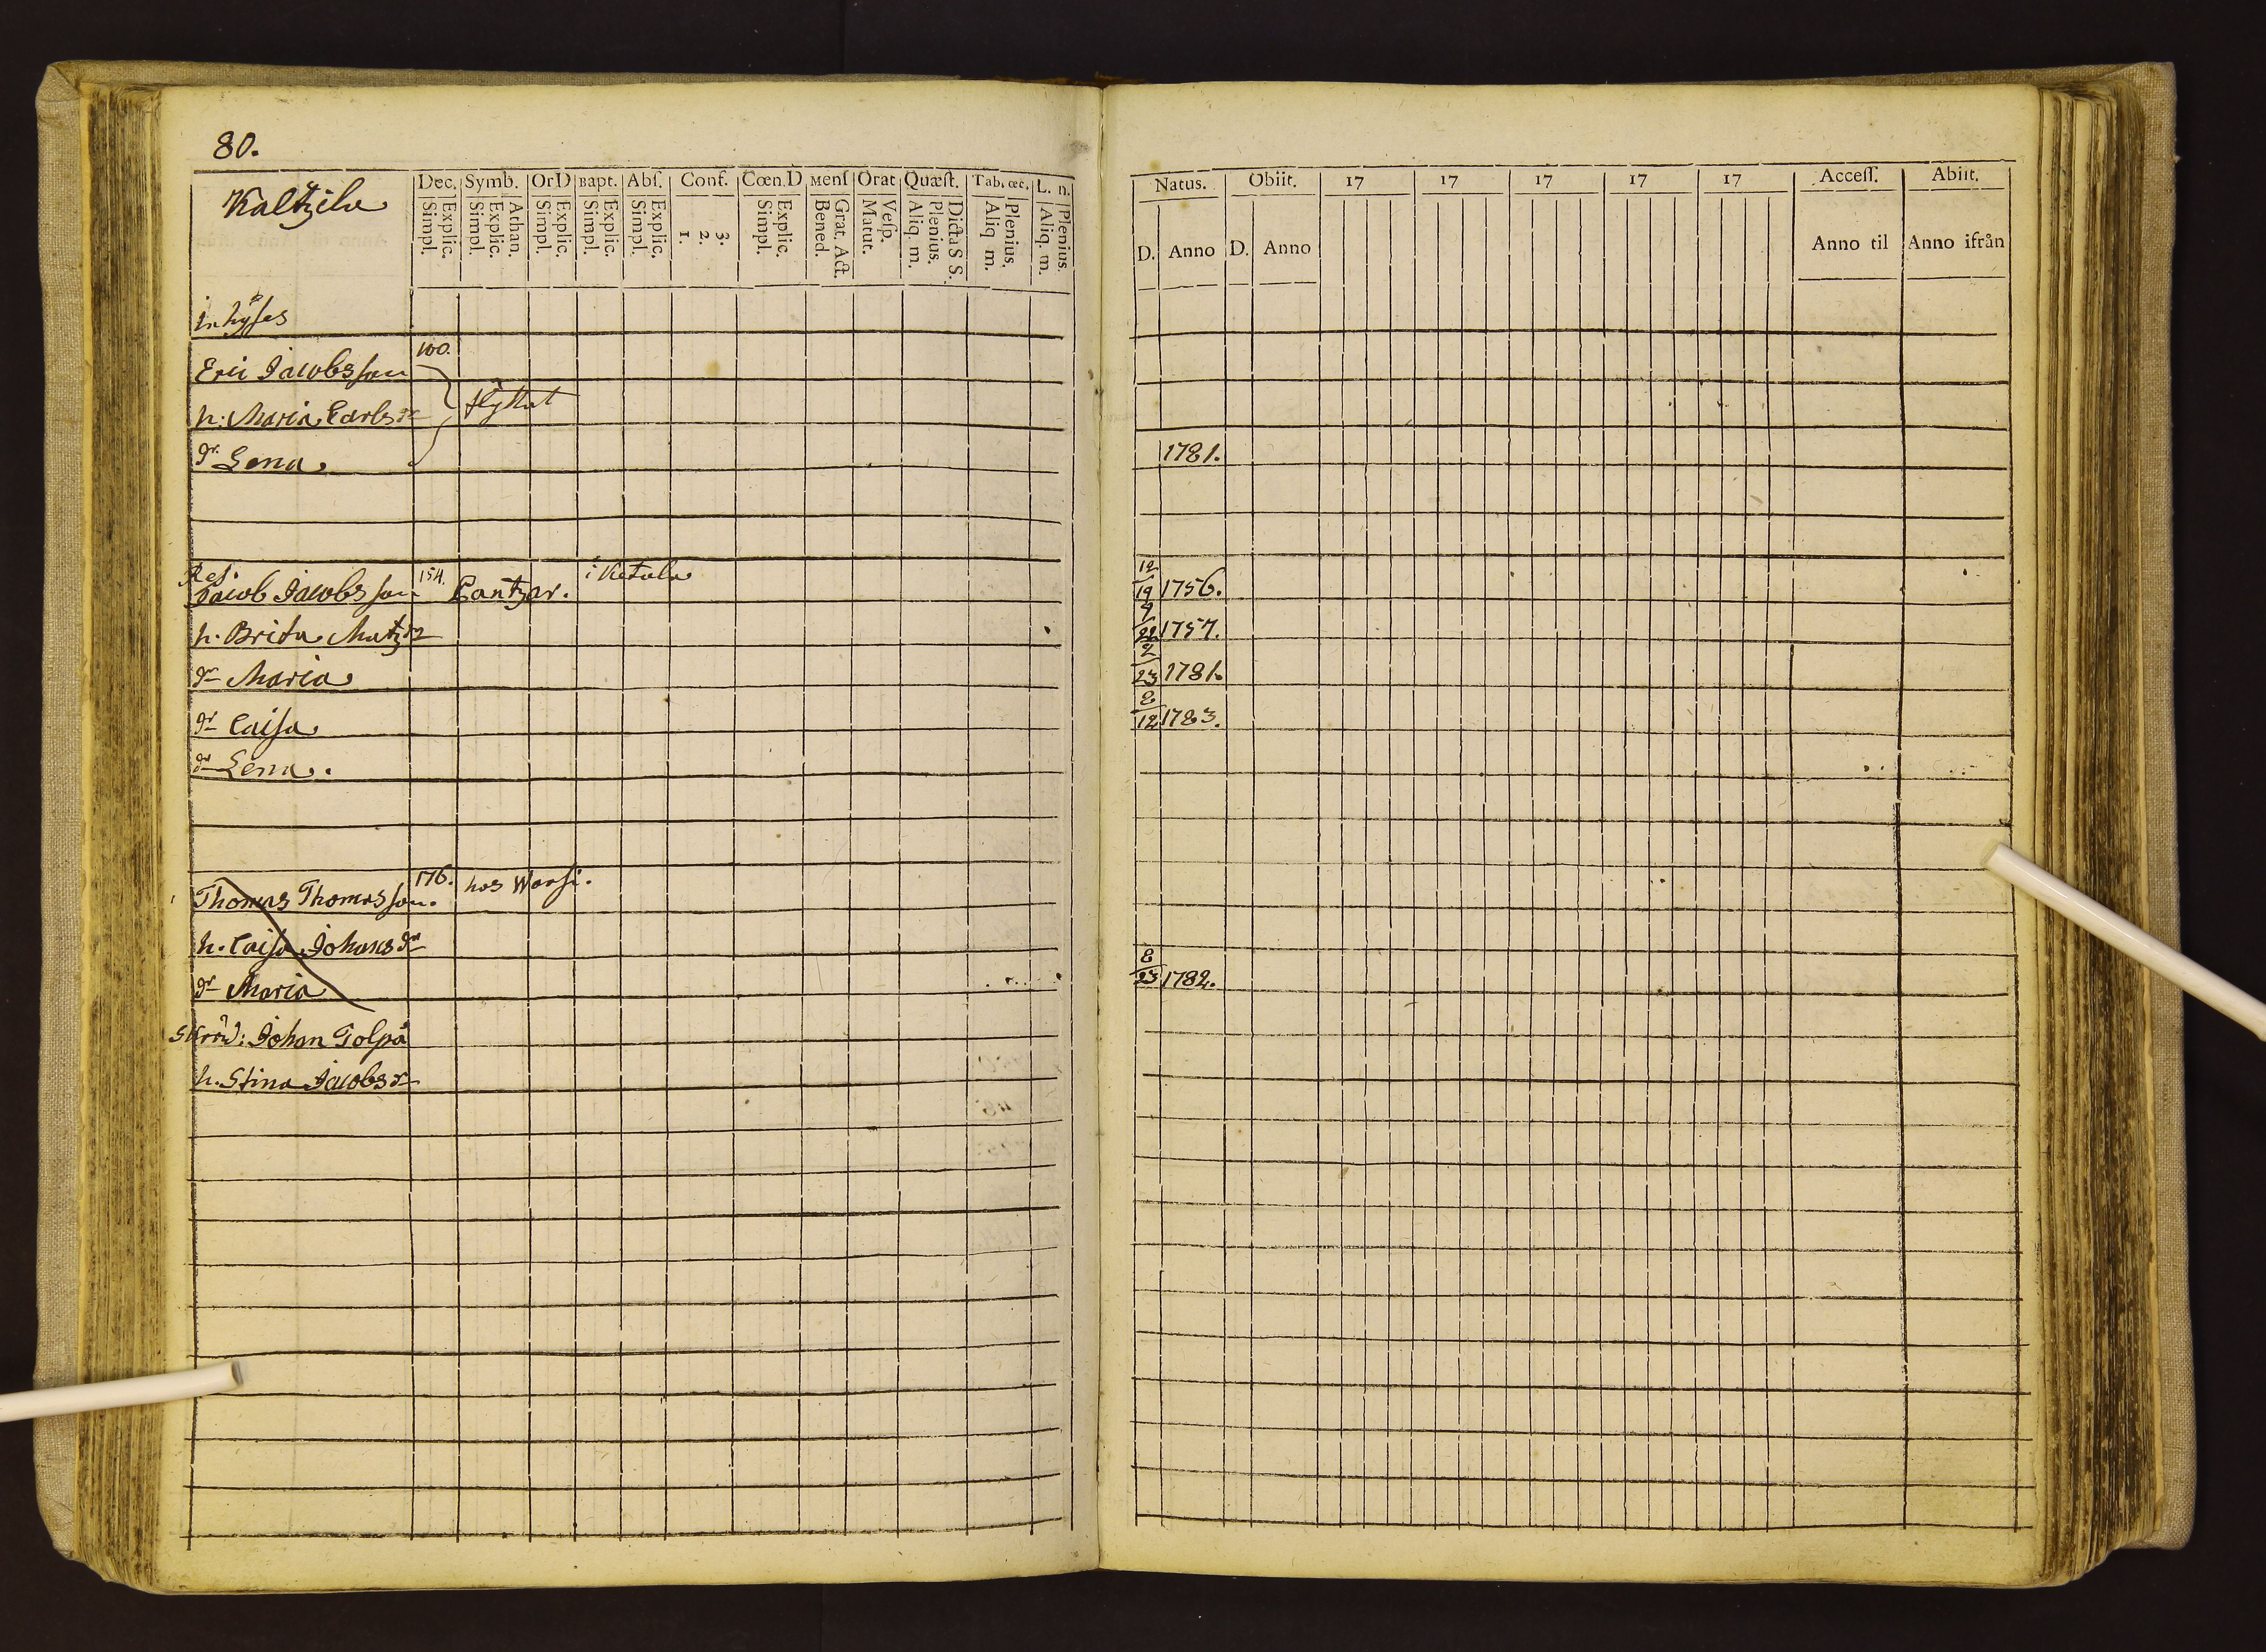 80.
Kaltzila
Dec. Symb. Or D Bapt. Abſ. Conf. Cœn. D Menſ Orat Quæſt. Tab. œc. L. n.
Simpl. Explic. Simpl. Explic. Athan. Simpl. Explic. Simpl. Explic. Simpl. Explic. 1. 2. 3. Simpl. Explic. Bened. Grat. Act. Matut. Veſp. Aliq. m. Plenius. Dicta S S. Aliq m. Plenius. Aliq. m. Plenius.
Inhyses
Eric Jacobsson 100.
h: Maria Carlsdr flyttat
dr Lena
Ref.
Jacob Jacobsson 154. Cantzar. i Ketala
h. Brita Matzdr
dr Maria
dr Caisa
dr Lena.
Thomas Thomasson. 176. hos Warsi.
h. Caisa Johansdr
dr Maria
Skräd: Johan Tolpå
h. Stina Jacobsdr
Natus. Obiit. 17 17 17 17 17 Acceſſ. Abiit.
D. Anno D. Anno Anno til Anno ifrån
1781.
12/19 1756.
9/22 1757.
2/23 1781.
8/12 1783.
8/23 1782.